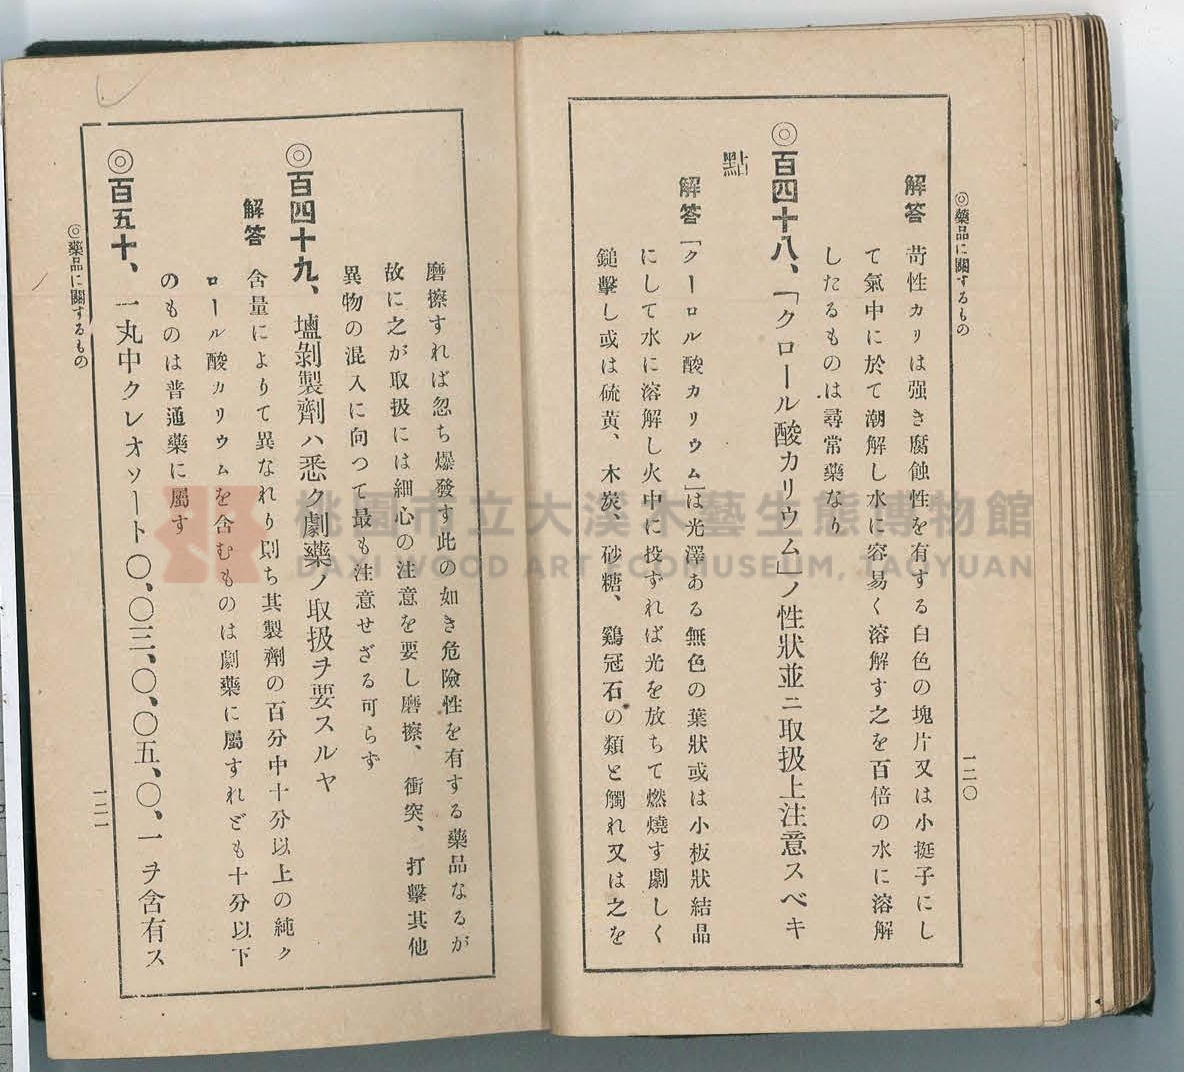 ◎藥品に關するもの
一二〇
解答 苛性カリは强き腐蝕性を有する白色の塊片又は小挺子にし
て氣中に於て潮解し水に容易く溶解す之を百倍の水に溶解
したるものは尋常藥なり
◎百四十八、「クロール酸カリウム」ノ性狀並ニ取扱上注意スベキ
點
解答 「クーロル酸カリウム」は光澤ある無色の葉狀或は小板狀結晶
にして水に溶解し火中に投ずれば光を放ちて燃燒す劇しく
鎚擊し或は硫黃、木炭、砂糖、鷄冠石の類と觸れ又は之を
磨擦すれば忽ち爆發す此の如き危險性を有する藥品なるが
故に之が取扱には細心の注意を要し磨擦、衝突、打擊其他
異物の混入に向つて最も注意せざる可らず
◎百四十九、塩剝製劑ハ悉ク劇藥ノ取扱ヲ要スルヤ
解答 含量によりて異なれり則ち其製劑の百分中十分以上の純ク
ロール酸カリウムを含むものは劇藥に屬すれども十分以下
のものは普通藥に屬す
◎百五十、一丸中クレオソート〇、〇三、〇、〇五、〇、一ヲ含有ス
◎藥品に關するもの
一二一
桃園市立大溪木藝生態博物館
DAXI WOOD ART ECOMUSEUM, TAOYUAN